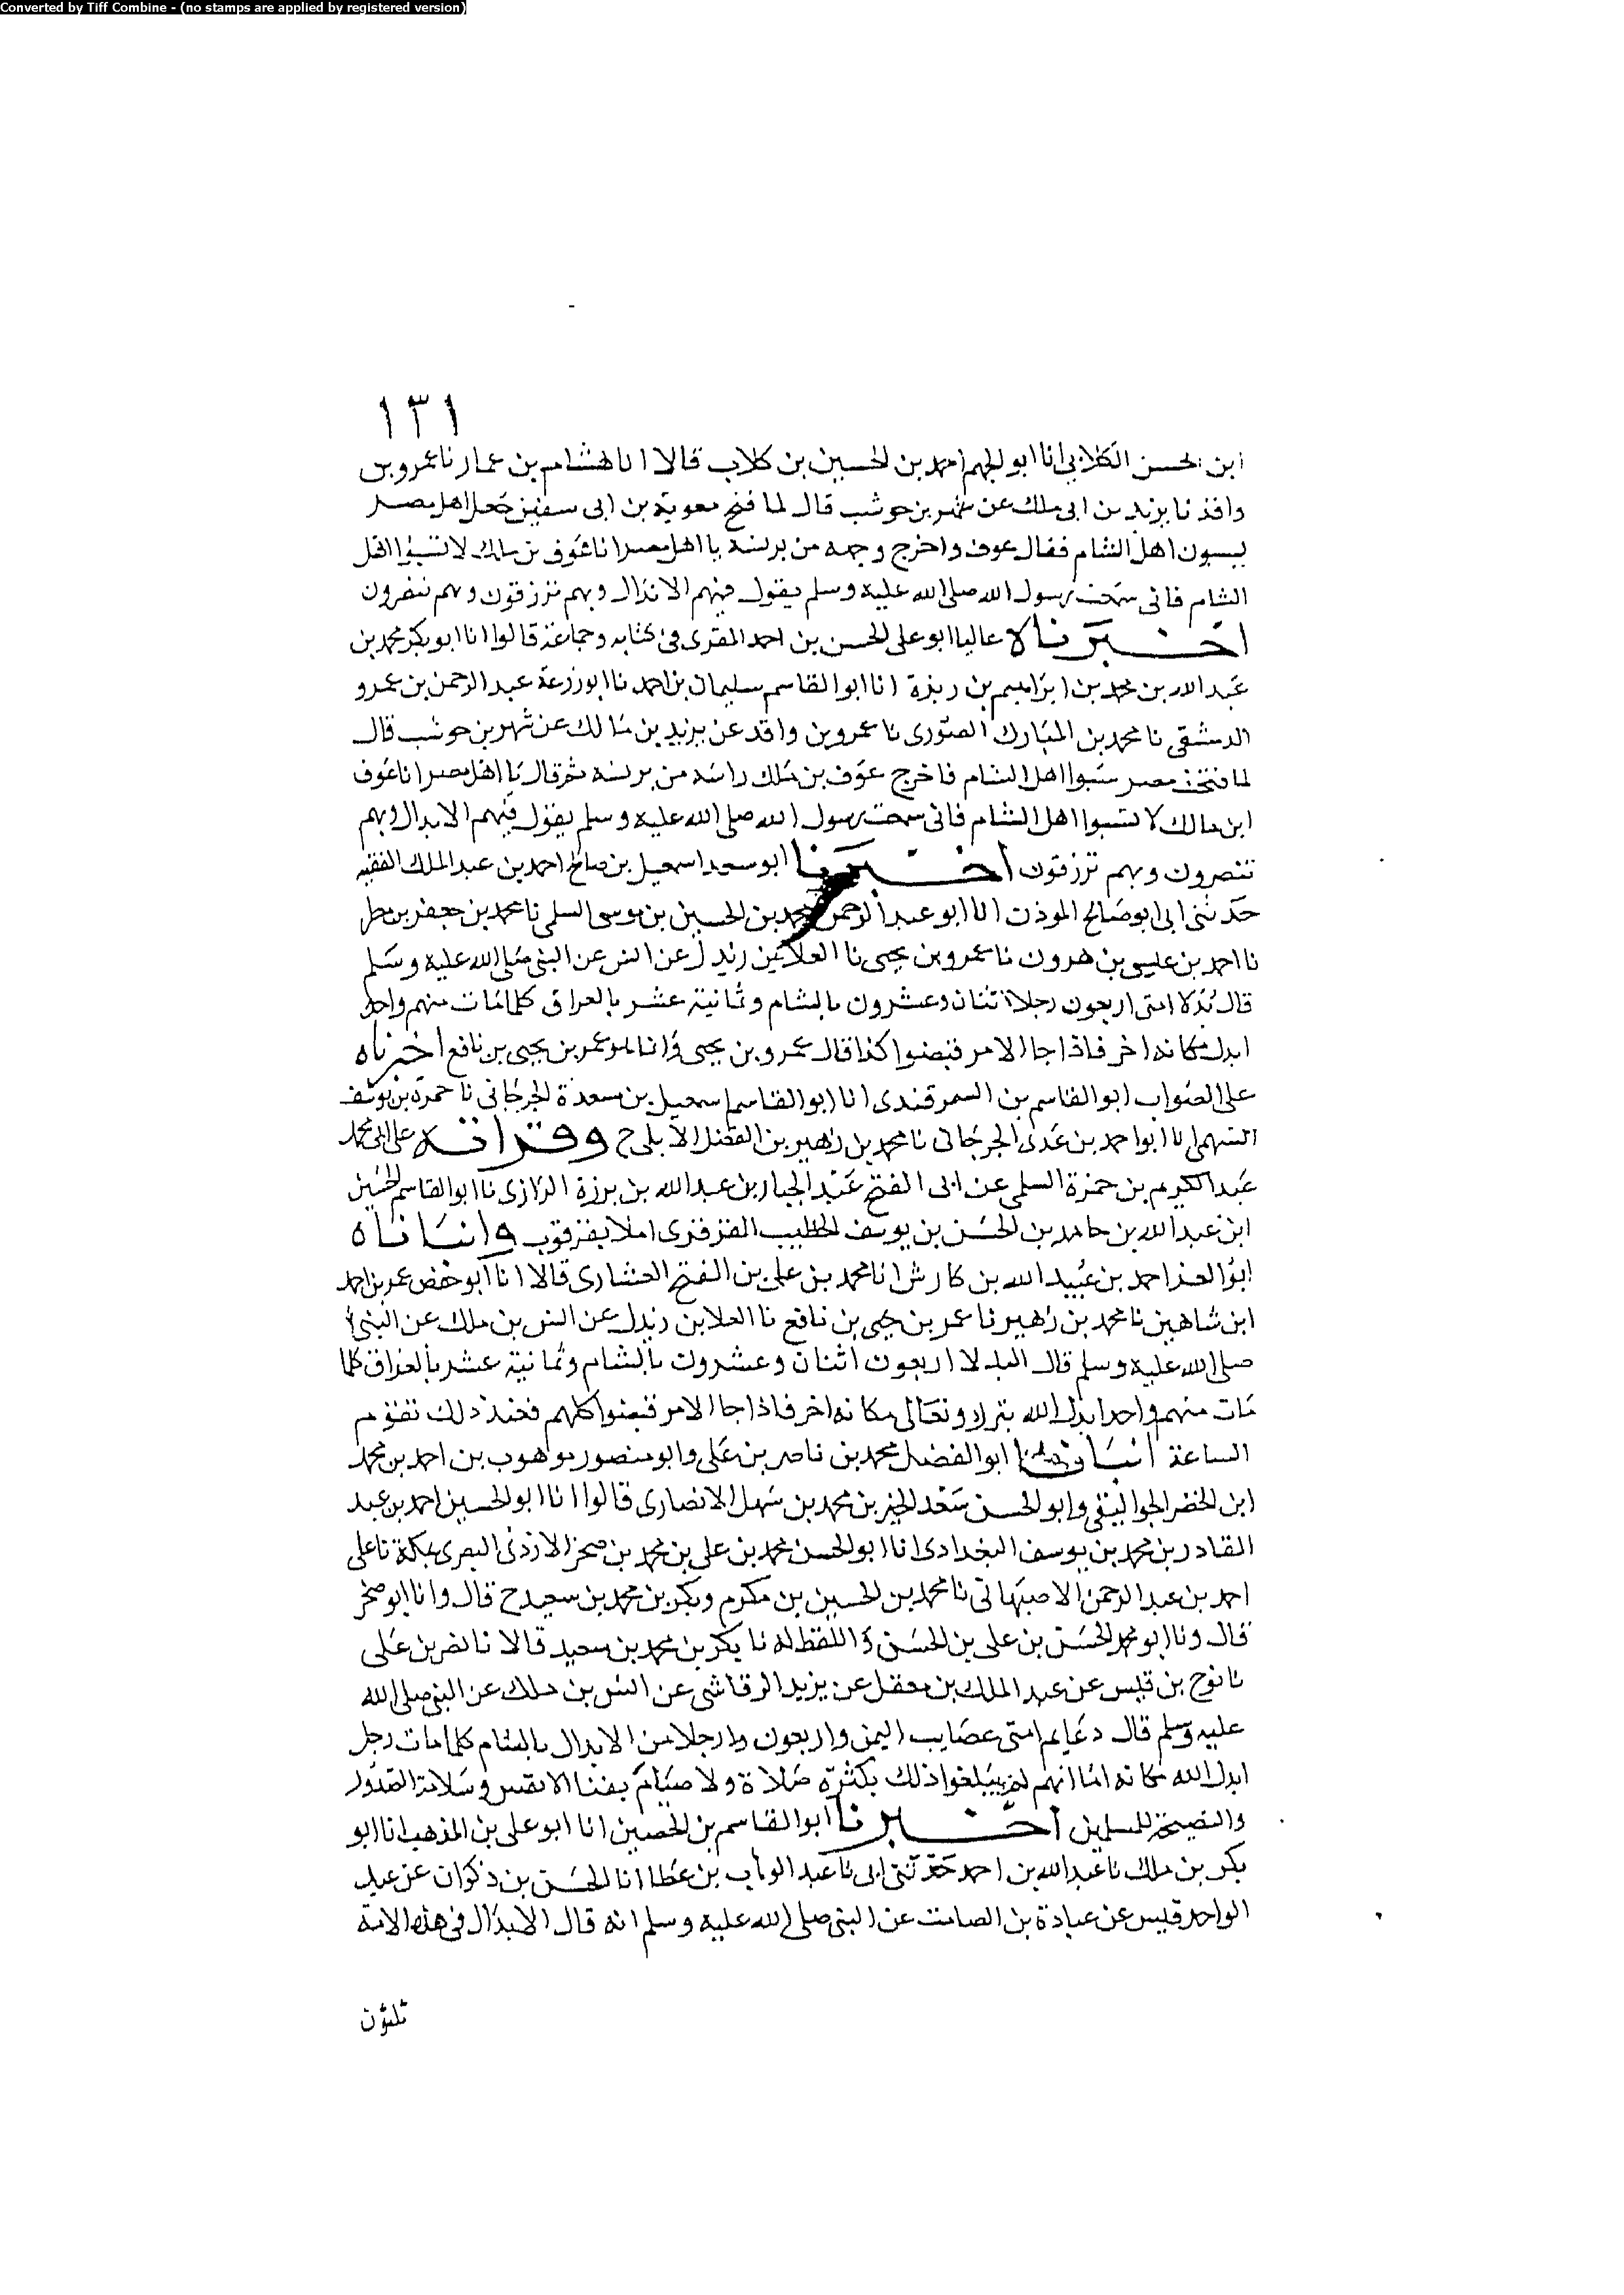 Converted by Tiff Combine - (no stamps are applied by registered version)
١٣١
ابن الحسن الكلابي انا ابو الجهم احمد بن الحسين بن كلاب قالا انا هشام بن عمار نا عمرو بن
واقد نا يزيد بن ابي ملك عن شهر بن حوشب قال لما فتح معوية بن ابي سفين جعل اهل مصر
يسبون اهل الشام فقال عوف واخرج وجهه من برنسه يا اهل مصر انا عوف بن ملك لا تسبوا اهل
الشام فاني سمعت رسول الله صلى الله عليه وسلم يقول فيهم الابدال وبهم ترزقون وبهم تنصرون
اخبرناه عاليا ابو علي الحسن بن احمد المقرى في كتابه وجماعة قالوا انا ابو بكر محمد بن
عبد الله بن محمد بن ابراهيم بن ريذة انا ابو القاسم سليمان بن احمد نا ابو زرعة عبد الرحمن بن عمرو
الدمشقي نا محمد بن المبارك الصوري نا عمرو بن واقد عن يزيد بن مالك عن شهر بن حوشب قال
لما فتحت مصر سبوا اهل الشام فاخرج عوف بن ملك راسه من برنسه ثم قال يا اهل مصر انا عوف
ابن مالك لا تسبوا اهل الشام فاني سمعت رسول الله صلى الله عليه وسلم يقول فيهم الابدال وبهم
تنصرون وبهم ترزقون اخبرنا ابو سعد اسمعيل بن صالح احمد بن عبد الملك الفقيه
حدثني ابي ابو صالح الموذن انا ابو عبد الرحمن محمد بن الحسين بن موسى السلمي نا محمد بن جعفر بن مطر
نا احمد بن عيسى بن هرون نا عمرو بن يحيى نا العلا بن زيدل عن انس عن النبي صلى الله عليه وسلم
قال بدلا امتي اربعون رجلا اثنان وعشرون بالشام وثمانية عشر بالعراق كلما مات منهم واحد
ابدل مكانه اخر فاذا جا الامر قبضوا كذا قال عمرو بن يحيى وانا هو عمر بن يحيى بن نافع اخبرناه
على الصواب ابو القاسم بن السمرقندى انا ابو القاسم اسمعيل بن مسعدة الجرجاني نا حمزة بن يوسف
السهمي انا ابو احمد بن عدى الجرجاني نا محمد بن زهير بن الفضل الابلي ح وقراته على ابي محمد
عبد الكريم بن حمزة السلمي عن ابي الفتح عبد الجبار بن عبد الله بن برزة الرازى نا ابو القاسم الحسين
ابن عبد الله بن حامد بن الحسن بن يوسف الخطيب القزقزى املا بقزقوب وانباناه
ابو العز احمد بن عبيد الله بن كارش انا محمد بن علي بن الفتح العشارى قالا انا ابو حفص عمر بن احمد
ابن شاهين نا محمد بن زهير نا عمر بن يحيى بن نافع نا العلا بن زيدل عن انس بن ملك عن النبي
صلى الله عليه وسلم قال البدلا اربعون اثنان وعشرون بالشام وثمانية عشر بالعراق كلما
مات منهم واحد ابدل الله تبرك وتعالى مكانه اخر فاذا جا الامر قبضوا كلهم فعند ذلك تقوم
الساعة انبانا ابو الفضل محمد بن ناصر بن علي وابو منصور موهوب بن احمد بن محمد
ابن الخضر الجواليقي وابو الحسن سعد الخير بن محمد بن سهل الانصارى قالوا انا ابو الحسين احمد بن عبد
القادر بن محمد بن يوسف البغدادى انا ابو الحسن محمد بن علي بن محمد بن صخر الازدى البصرى بمكة نا علي
احمد بن عبد الرحمن الاصبهاني نا محمد بن الحسين بن مكرم وبكر بن محمد بن سعيد ح قال وانا ابو صخر
قال ونا ابو محمد الحسن بن علي بن الحسن واللفظ له نا بكر بن محمد بن سعيد قالا نا نصر بن علي
نا نوح بن قيس عن عبد الملك بن معقل عن يزيد الرقاشي عن انس بن ملك عن النبي صلى الله
عليه وسلم قال دعايم امتي عصايب اليمن واربعون رجلا من الابدال بالشام كلما مات رجل
ابدل الله مكانه اما انهم لم يبلغوا ذلك بكثرة صلاة ولا صيام بسخا الانفس وسلامة الصدور
والنصيحة للمسلمين اخبرنا ابو القاسم بن الحصين انا ابو علي بن المذهب انا ابو
بكر بن ملك نا عبد الله بن احمد حدثني ابي نا عبد الوهاب بن عطا انا الحسن بن ذكوان عن عبد
الواحد قيس عن عبادة بن الصامت عن النبي صلى الله عليه وسلم انه قال الابدال في هذه الامة
ثلثون